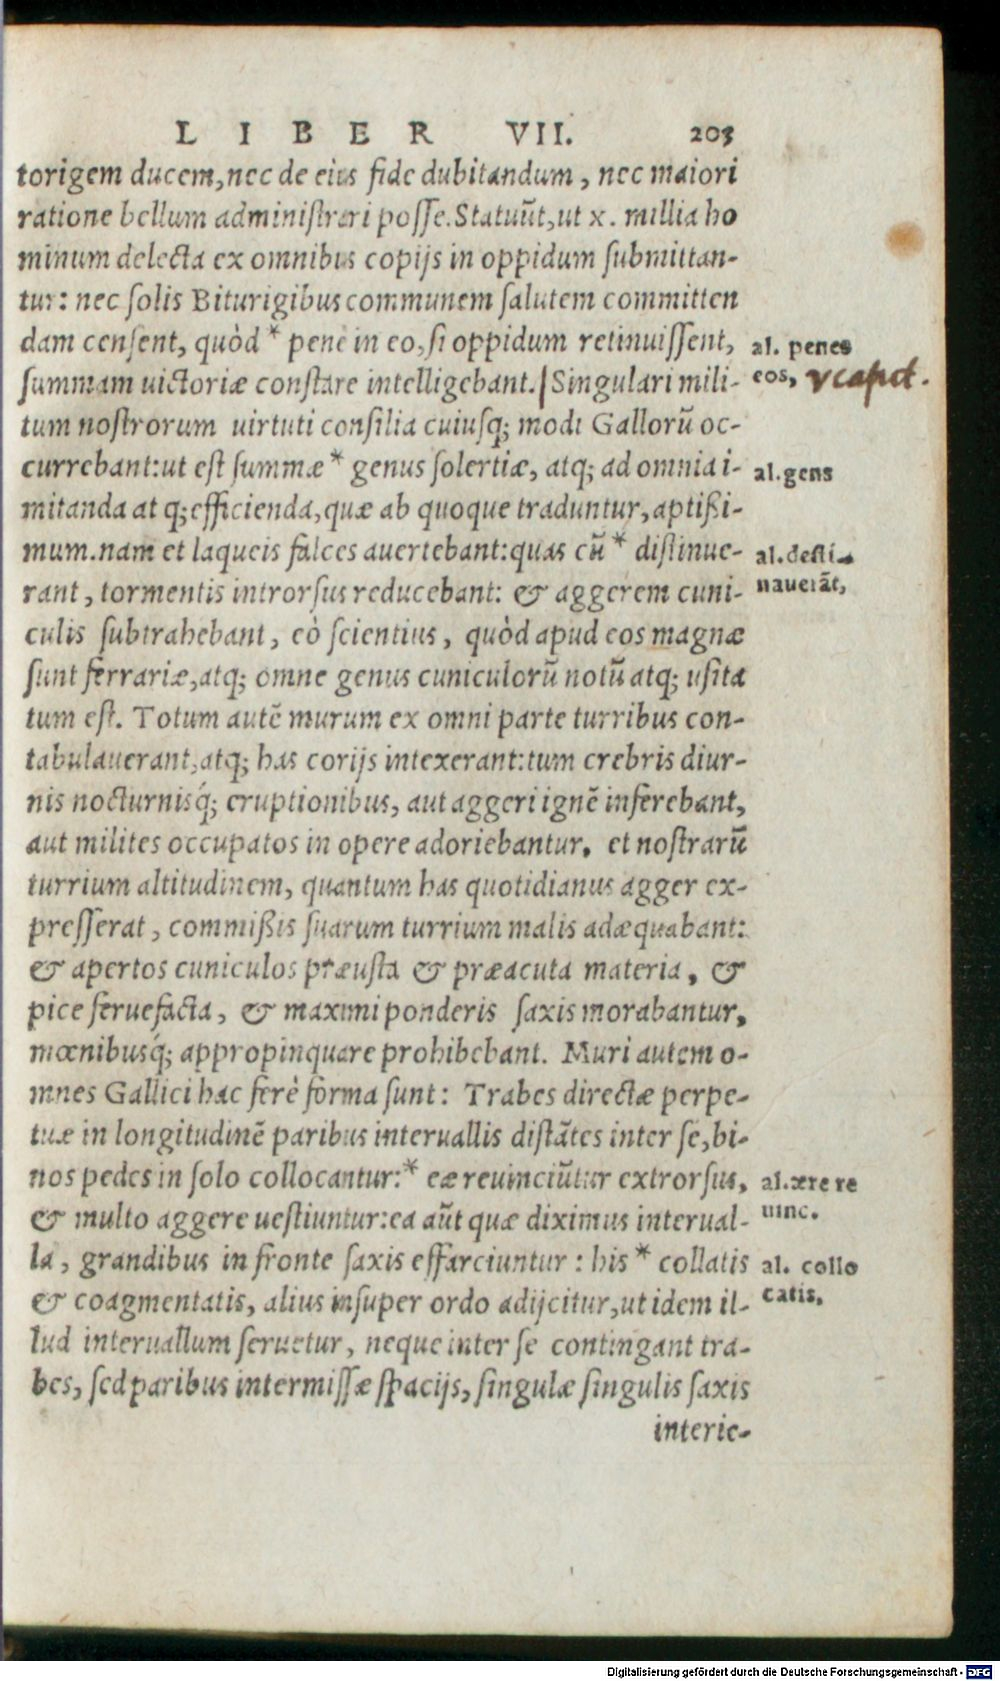 LIBER VII. 203
torigem ducem, nec de eius fide dubitandum, nec maiori
ratione bellum administrari posse. Statuūt, ut x. millia ho
minum delecta ex omnibus copijs in oppidum submittan-
tur: nec solis Biturigibus communem salutem committen
dam censent, quòd * penè in eo, si oppidum retinuissent,
al. penes
eos,
summam uictoriæ constare intelligebant. | Singulari mili-
tum nostrorum uirtuti consilia cuiusq; modi Gallorū oc-
currebant: ut est summæ * genus solertiæ, atq; ad omnia i-
al. gens
mitanda at q; efficienda, quæ ab quoque traduntur, aptißi-
mum. nam et laqueis falces auertebant: quas cū * distinue-
al. desti-
nauerāt,
rant, tormentis introrsus reducebant: & aggerem cuni-
culis subtrahebant, eò scientius, quòd apud eos magnæ
sunt ferrariæ, atq; omne genus cuniculorū notū atq; usita
tum est. Totum autē murum ex omni parte turribus con-
tabulauerant, atq; has corijs intexerant: tum crebris diur-
nis nocturnisq́; eruptionibus, aut aggeri ignē inferebant,
aut milites occupatos in opere adoriebantur. et nostrarū
turrium altitudinem, quantum has quotidianus agger ex-
presserat, commißis suarum turrium malis adæquabant:
& apertos cuniculos præusta & præacuta materia, &
pice feruefacta, & maximi ponderis saxis morabantur,
mœnibusq́; appropinquare prohibebant. Muri autem o-
mnes Gallici hac ferè forma sunt: Trabes directæ perpe-
tuæ in longitudinē paribus interuallis distātes inter se, bi-
nos pedes in solo collocantur: * eæ reuinciūtur extrorsus,
al. ære re
uinc.
& multo aggere uestiuntur: ea aūt quæ diximus interual-
la, grandibus in fronte saxis effarciuntur: his * collatis
al. collo
catis,
& coagmentatis, alius insuper ordo adijcitur, ut idem il-
lud interuallum seruetur, neque inter se contingant tra-
bes, sed paribus intermissæ spacijs, singulæ singulis saxis
interie-
Digitalisierung gefördert durch die Deutsche Forschungsgemeinschaft - DFG